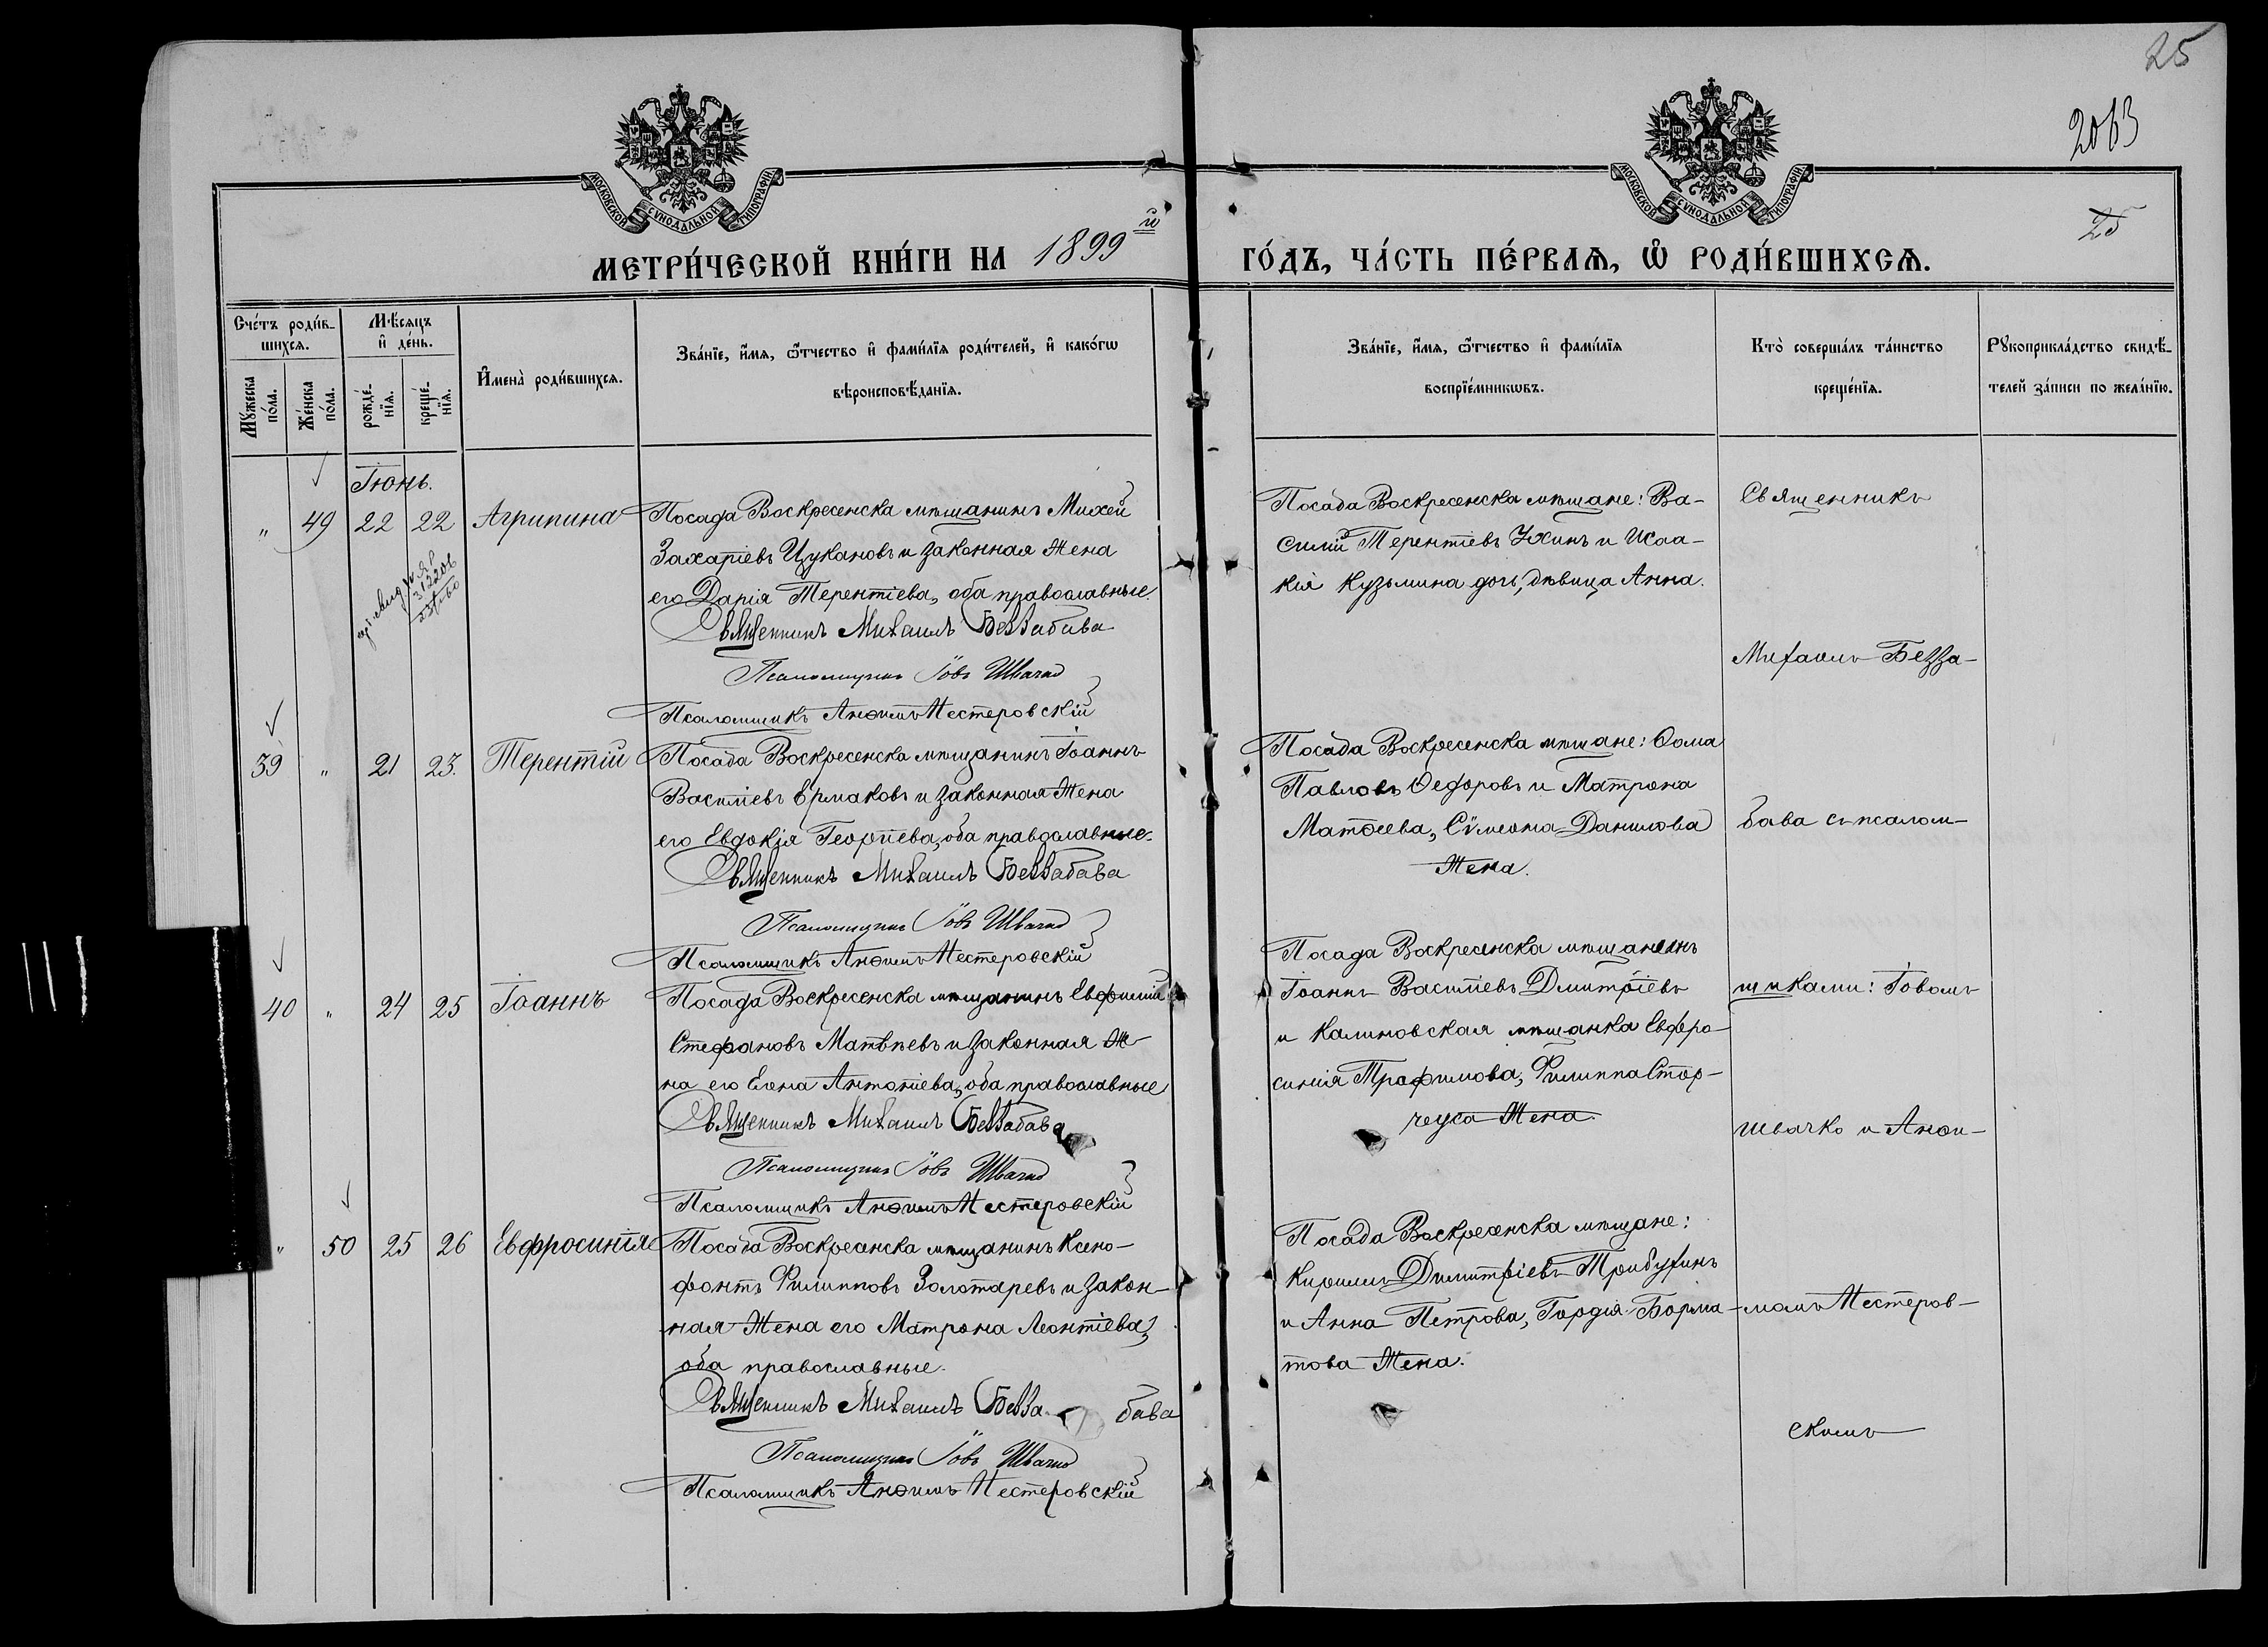 25
2063
25
МОСКОВСКОЙ СУНОДАЛЬНОЙ ТИПОГРАФІИ
МОСКОВСКОЙ СУНОДАЛЬНОЙ ТИПОГРАФІИ
МЕТРИ́ЧЕСКОЙ КНИ́ГИ НА 1899й ГО́ДЪ, ЧА́СТЬ ПЕ́РВАѦ, Ѡ҆ РОДИ́ВШИХСѦ.
Сче́тъ роди́в-
шихсѧ.
Мꙋ́жеска
по́ла.
Же́нска
по́ла.
Мѣ́сѧцъ
и҆ де́нь.
рожде́-
нїѧ.
креще́-
нїѧ.
И҆мена̀ роди́вшихсѧ.
Зва́нїе, и҆́мѧ, ѻ҆́тчество и҆ фами́лїѧ роди́телей, и҆ како́гѡ
вѣроисповѣ́данїѧ.
Зва́нїе, и҆́мѧ, ѻ҆́тчество и҆ фами́лїѧ
воспрїе́мникѡвъ.
Кто̀ соверша́лъ та́инство
креще́нїѧ.
Рꙋкоприкла́дство свидѣ́-
телей за́писи по жела́нїю.
Іюнь.
" 49 22 22 Агрипина
Посада Воскресенска мѣщанинъ Михей
Захаріевъ Цукановъ и законная жена
его Дарія Терентіева, оба православные.
Священникъ Михаилъ Беззабава
Псаломщикъ Іовъ Швачко
Псаломщикъ Анѳимъ Нестеровскій
Посада Воскресенска мѣщане: Ва-
силій Терентіевъ Ухинъ и Исаа-
кія Кузьмина дочь, дѣвица Анна.
39 " 21 23. Терентій
Посада Воскресенска мѣщанинъ Іоаннъ
Василіевъ Ермаковъ и законная жена
его Евдокія Георгіева, оба православные.
Священникъ Михаилъ Беззабава
Псаломщикъ Іовъ Швачко
Псаломщикъ Анѳимъ Нестеровскій
Посада Воскресенска мѣщане: Ѳома
Павловъ Ѳедоровъ и Матрона
Матѳеева, Сѵмеона Данилова
жена.
40 " 24 25 Іоаннъ
Посада Воскресенска мѣщанинъ Евфимій
Стефановъ Матвѣевъ и законная же-
на его Елена Антоніева, оба православные
Священникъ Михаилъ Беззабава
Псаломщикъ Іовъ Швачко
Псаломщикъ Анѳимъ Нестеровскій
Посада Воскресенска мѣщанинъ
Іоаннъ Василіевъ Димитріевъ
и Калиновская мѣщанка Евфро-
синія Трофимова, Филиппа Стор-
чеуса жена.
" 50 25 26 Евфросинія
Посада Воскресенска мѣщанинъ Ксено-
фонтъ Филипповъ Золотаревъ и закон-
ная жена его Матрона Леонтіева,
оба православные.
Священникъ Михаилъ Безза бава
Псаломщикъ Іовъ Швачко
Псаломщикъ Анѳимъ Нестеровскій
Посада Воскресенска мѣщане:
Кириллъ Димитріевъ Трибухинъ
и Анна Петрова, Гордія Борма-
това жена.
Священникъ
Михаилъ Безза-
бава съ псалом-
щиками: Іовомъ
Швачко и Анѳи-
момъ Нестеров-
скимъ